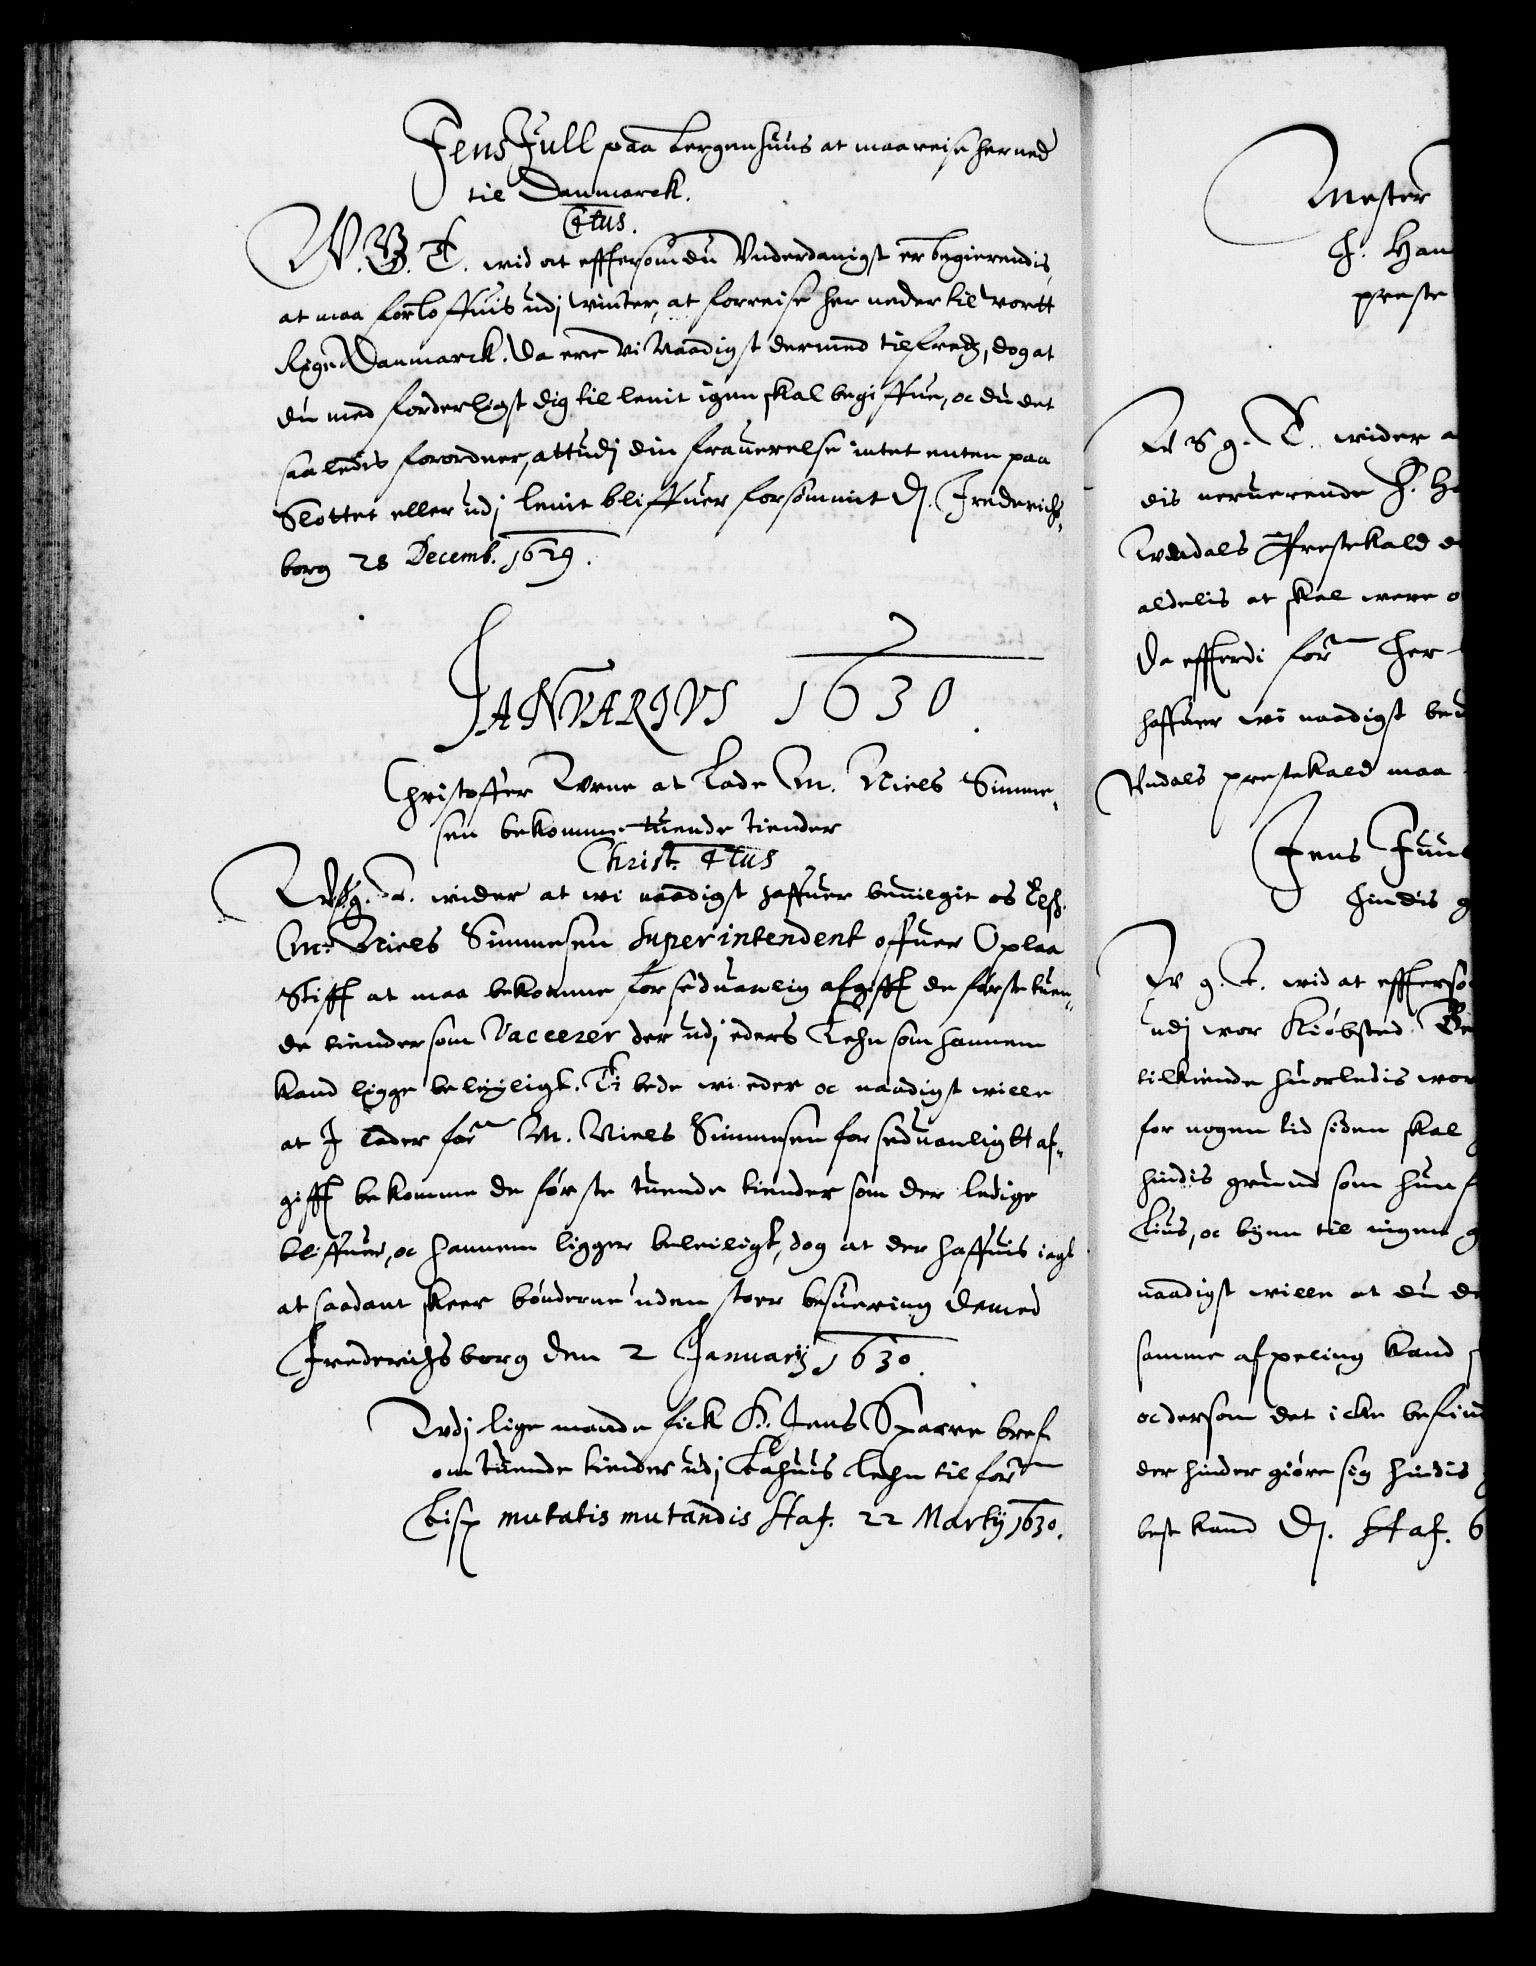 Jens Jull paa Bergenhuus at maa reise her ned
til Danmarck.
C4tus.
W. G. T. wid at effersom du Vnderdanigst er begierendis
at maa forloffuis udj winter, at forreise her neder til vortt
Rige Danmarck. Da ere Vi Naadigst dermed tilfredz, dog at
du med forderligst dig til lenit igen skal begiffue, oc du det
saaledis forordner, att udj din frauerelse intet enten paa
Slottet eller udj lenit bliffuer forsømmit Dj. Frederichs-
borg 28 Decemb. 1629.
JANVARIVS 1630.
Christoffer Vrne at Lade M. Niels Simme-
sen bekomme tuende tiender
Christ. 4tus
W. g. T. wider at wi naadigst haffuer beuilgit os Elsk.
M. Niels Simmesen Superintendent offuer Oplaa
Stifft at maa bekomme for seduanlig afgifft de første tuen-
de tiender som Vaceerer der udj eders Lehn som hannem
kand ligge beleiligt. Ti bede wi eder oc naadigst wille
at J lader forne M. Niels Simmesen for seduanligtt af-
gifft bekomme de første tuende tiender som der ledige
bliffuer, oc hannem ligger beleiligt, dog at der haffuis iagt
at saadant skeer bønderne uden stoer besuering Dermed
Frederichsborg den 2 Januarij 1630.
Udj lige maade fick H. Jens Sparre bref
om tuende tiender udj Bahuus Lehn til forne
Bisp mutatis mutandis Haf. 22 Martij 1630.
Mester
H. Han
preste
W g. T. wider a
dis neruerende H. H
Prestekald
aldelis at skal were o
Da effterdi forne Her
haffuer wi naadigst be
prestekald maa
Jens Juul
hindis g
W g. T. wid at efferso
udj wor Kiøbsted Be
tilkiende huorledis wor
for nogen tid siden skal
hindis grund som hun
huus, oc byen til ingen g
naadigst wille at du de
samme afpeling kand
oc dersom det icke befind
der hinder giøre sig hindis
best kand Dj. Haf. 6